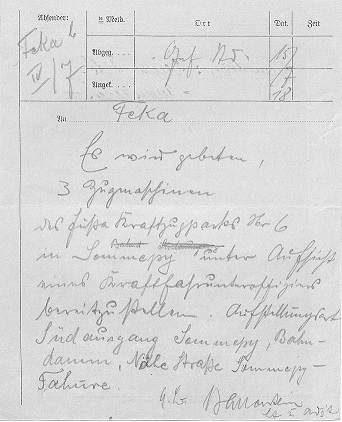 Absender:
te Meld.
Ort
Dat.
Zeit
Feka 6
IV/7
Abgeg. ....
Gef. Std.
15/
Angek. ....
18
An
Feka
Es wird gebeten,
3 Zugmaschinen
des Fußa Kraftzugparks Nr 6
in Sommepy unter Aufsicht
eines Kraftfahrunteroffiziers
bereitzustellen. Aufstellungsort
Südausgang Sommepy, Bahn-
damm, Nähe Straße Sommepy-
Tahure.